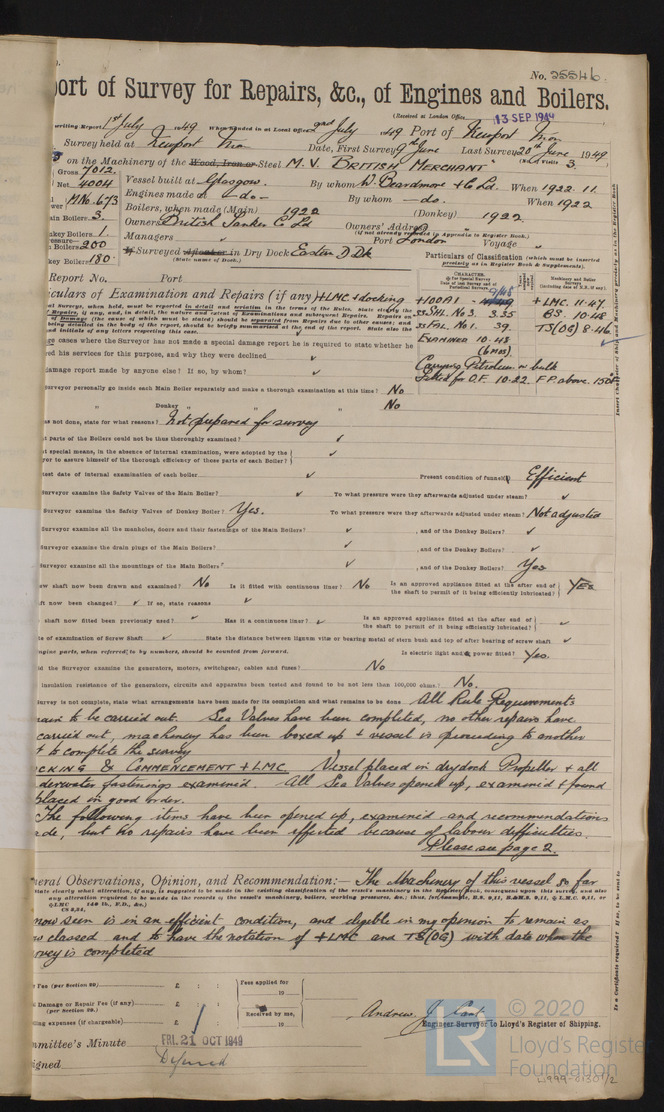 No. 25546.
port of Survey for Repairs, &c., of Engines and Boilers.
(Received at London Office
13 SEP 1949
writing Report, 1st July 1949 When handed in at Local Office 2nd July 1949 Port of Newport Mon
Survey held at Newport Mon Date, First Survey 9th June Last Survey 20th June 1949
(No. of Visits 3.
on the Machinery of the Wood, Iron or Steel M.V. "BRITISH MERCHANT"
Gross 7012.
Net 4004
Vessel built at Glasgow. By whom W. Beardmore & Co Ld. When 1922. 11.
MNo. 673
Engines made at -do- By whom -do. When 1922
Main Boilers 3.
Boilers, when made (Main) 1922 (Donkey) 1922.
nkey Boilers 1.
Owners British Tanker Co Ld Owners' Address
(if not already recorded in Appendix to Register Book.)
essure—
n Boilers 200
Managers Port London Voyage
If Surveyed Afloat or in Dry Dock Eastern D Dk
(State name of Dock.)
key Boilers 180
Particulars of Classification (which must be inserted
precisely as in Register Book & Supplements).
Report No. Port
culars of Examination and Repairs (if any) +LMC + docking
CHARACTER.
+100A1 -
9/48
+LMC. 11.47.
SS.SHL. No 3. 3.35
BS. 10.48
SS.PAL. No 1. 39.
TS(OG) 8.46
EXAMINER 10.48
(6 mos)
Carrying Petroleum in bulk
Fitted for O.F. 10.22. F.P. above. 150°
ge cases where the Surveyor has not made a special damage report he is required to state whether he
red his services for this purpose, and why they were declined
damage report made by anyone else? If so, by whom?
urveyor personally go inside each Main Boiler separately and make a thorough examination at this time? No
" Donkey " " " " No
as not done, state for what reasons? Not prepared for survey
t parts of the Boilers could not be thus thoroughly examined?
t special means, in the absence of internal examination, were adopted by the
yor to assure himself of the thorough efficiency of those parts of each Boiler?
test date of internal examination of each boiler Present condition of funnel Efficient
Surveyor examine the Safety Valves of the Main Boiler? To what pressure were they afterwards adjusted under steam?
urveyor examine the Safety Valves of Donkey Boiler? Yes. To what pressure were they afterwards adjusted under steam? Not adjusted
urveyor examine all the manholes, doors and their fastenings of the Main Boilers? , and of the Donkey Boilers?
urveyor examine the drain plugs of the Main Boilers? , and of the Donkey Boilers?
urveyor examine all the mountings of the Main Boilers? , and of the Donkey Boilers? Yes
ew shaft now been drawn and examined? No Is it fitted with continuous liner? No Is an approved appliance fitted at the after end of
the shaft to permit of it being efficiently lubricated? Yes
ft now been changed? If so, state reasons
shaft now fitted been previously used? Has it a continuous liner? Is an approved appliance fitted at the after end of
the shaft to permit of it being efficiently lubricated?
te of examination of Screw Shaft State the distance between lignum vitæ or bearing metal of stern bush and top of after bearing of screw shaft
ngine parts, when referred to by numbers, should be counted from forward. Is electric light and power fitted? Yes.
id the Surveyor examine the generators, motors, switchgear, cables and fuses? No
insulation resistance of the generators, circuits and apparatus been tested and found to be not less than 100,000 ohms? No.
urvey is not complete, state what arrangements have been made for its completion and what remains to be done All Rule Requirements
main to be carried out. Sea Valves have been completed, no other repairs have
carried out, machinery has been boxed up & vessel is proceeding to another
t to complete the survey
CKING & COMMENCEMENT +LMC. Vessel placed in drydock Propeller & all
derwater fastenings examined. All Sea Valves opened up, examined & found
placed in good order.
The following items have been opened up, examined and recommendations
de, but no repairs have been effected because of labour difficulties.
Please see page 2.
neral Observations, Opinion, and Recommendation:— The Machinery of this vessel so far
now seen is in an efficient condition, and eligible in my opinion to remain as
w classed and to have the notation of +LMC and TS(OG) with date when the
rvey is completed
y Fee (per Section 29) £ : :
Fees applied for
19
k Damage or Repair Fee (if any) £ : :
(per Section 29.)
Received by me,
19
ling expenses (if chargeable) £ : :
Andrew J. Cant
Engineer Surveyor to Lloyd's Register of Shipping.
mmittee's Minute FRI. 21 OCT 1949
signed Deferred
LR
© 2020
Lloyd's Register
Foundation